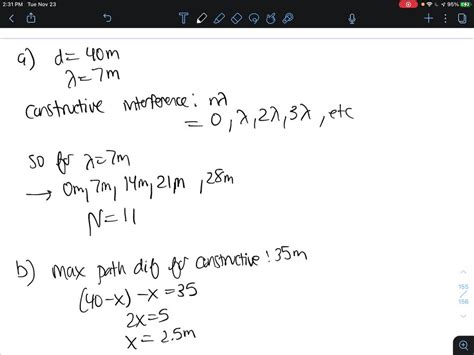 2:31 PM Tue Nov 23
95%
a) d = 40m
λ = 7m
constructive interference: nλ
= 0, λ, 2λ, 3λ, etc
so for λ = 7m
→ 0m, 7m, 14m, 21m, 28m
N = 11
b) max path dif for constructive: 35m
(40-x) - x = 35
2x = 5
x = 2.5m
155
156